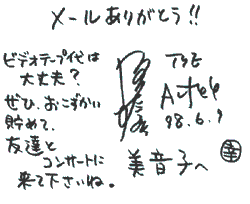 メールありがとう!!
ビデオテープ代は
大丈夫?
ぜひ、おこずかい
貯めて、
友達と
コンサートに
来て下さいね。
THE
98.6.9
美音子へ
幸